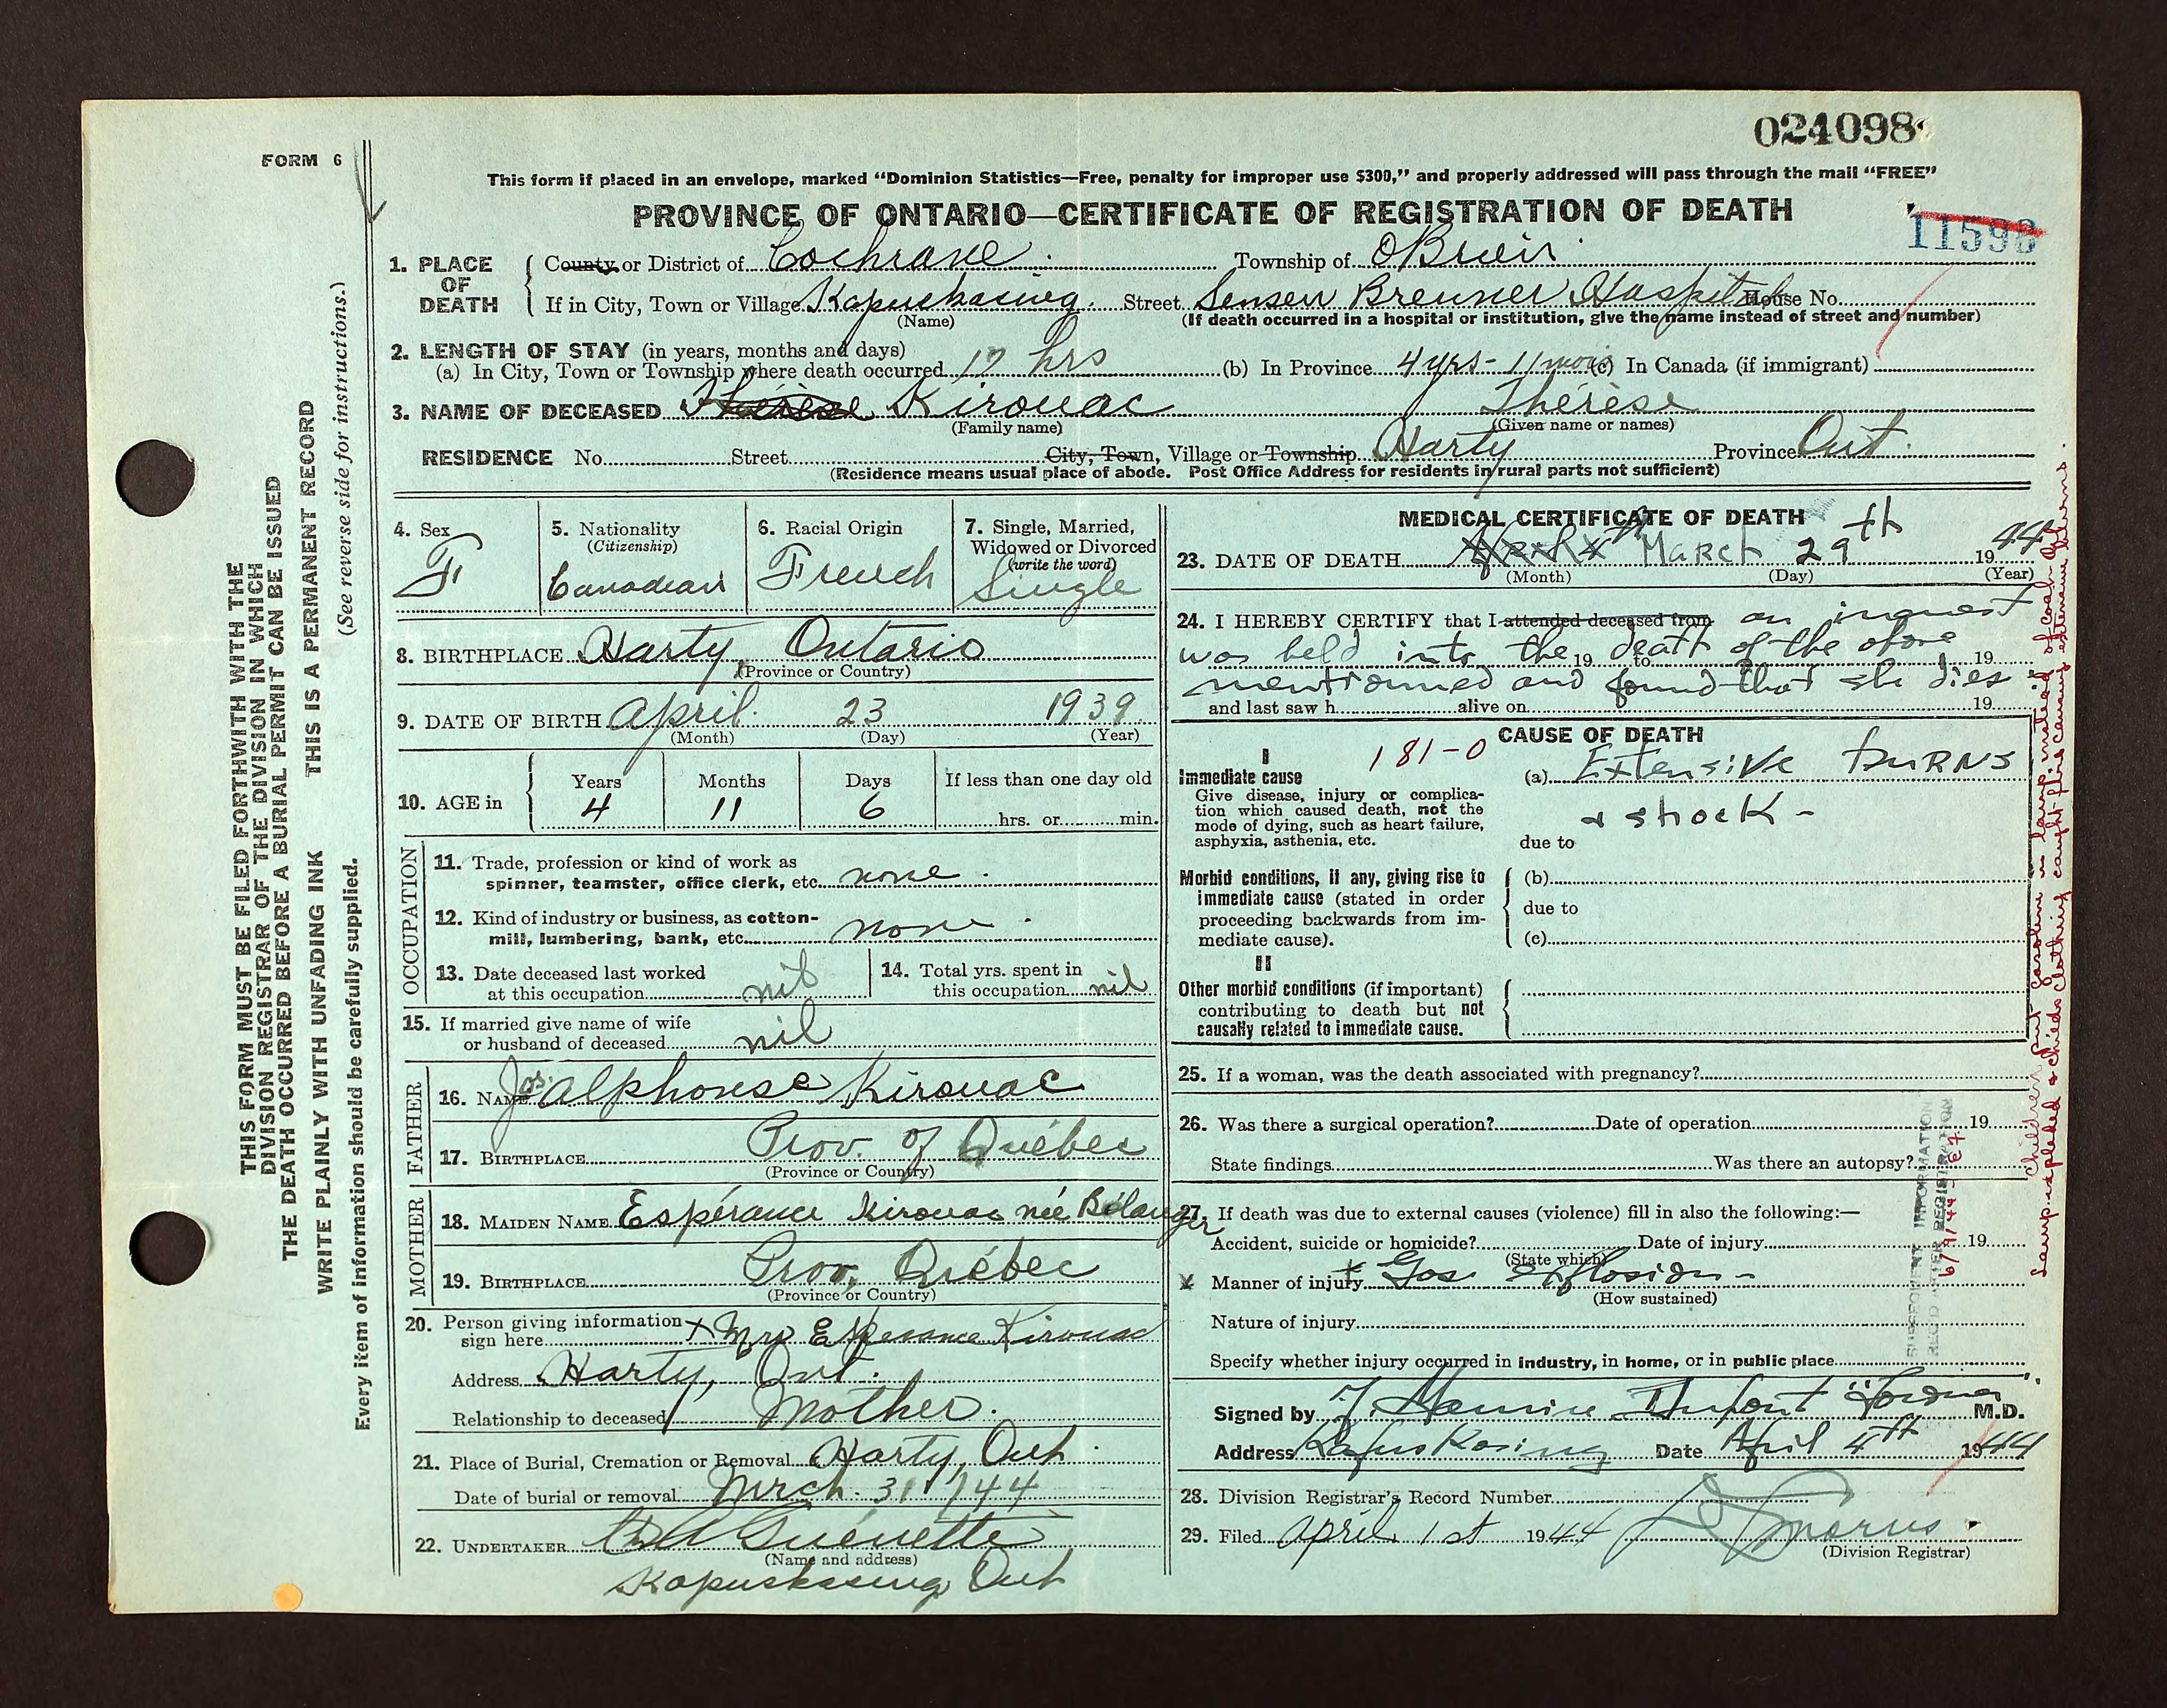 024098
FORM 6
This form if placed in an envelope, marked "Dominion Statistics—Free, penalty for improper use $300," and properly addressed will pass through the mail "FREE"
PROVINCE OF ONTARIO—CERTIFICATE OF REGISTRATION OF DEATH
11598
1. PLACE OF DEATH
County or District of Cochrane Township of OBrien
If in City, Town or Village Kapuskasing. Street Sensen Brenner Hospital House No.
(Name) (If death occurred in a hospital or institution, give the name instead of street and number)
2. LENGTH OF STAY (in years, months and days)
(a) In City, Town or Township where death occurred 17 hrs (b) In Province 4 yrs - 11 mois (c) In Canada (if immigrant)
3. NAME OF DECEASED Thérèse Kirouac Thérèse
(Family name) (Given name or names)
RESIDENCE No. Street City, Town, Village or Township Harty Province Ont.
(Residence means usual place of abode. Post Office Address for residents in rural parts not sufficient)
4. Sex
F
5. Nationality
(Citizenship)
Canadian
6. Racial Origin
French
7. Single, Married,
Widowed or Divorced
(write the word)
Single
8. BIRTHPLACE Harty, Ontario
(Province or Country)
9. DATE OF BIRTH April 23 1939
(Month) (Day) (Year)
10. AGE in
Years Months Days If less than one day old
4 11 6 hrs. or min.
OCCUPATION
11. Trade, profession or kind of work as
spinner, teamster, office clerk, etc. none
12. Kind of industry or business, as cotton-
mill, lumbering, bank, etc. none
13. Date deceased last worked
at this occupation nil
14. Total yrs. spent in
this occupation nil
15. If married give name of wife
or husband of deceased nil
FATHER
16. NAME Jos. Alphonse Kirouac
17. BIRTHPLACE Prov. of Québec
(Province or Country)
MOTHER
18. MAIDEN NAME Espérance Kirouac née Bélanger
19. BIRTHPLACE Prov. Québec
(Province or Country)
20. Person giving information
sign here x Mrs Esperance Kirouac
Address Harty, Ont.
Relationship to deceased Mother.
21. Place of Burial, Cremation or Removal Harty, Ont.
Date of burial or removal Mrch. 31 / 44
22. UNDERTAKER Guénette
(Name and address)
Kapuskasing Ont
MEDICAL CERTIFICATE OF DEATH
23. DATE OF DEATH March 29th 1944
(Month) (Day) (Year)
24. I HEREBY CERTIFY that I attended deceased from an inquest
was held into the death of the above
19 to 19
mentionned and found that she dies
and last saw h alive on 19
CAUSE OF DEATH
I
181-0
Immediate cause
Give disease, injury or complica-
tion which caused death, not the
mode of dying, such as heart failure,
asphyxia, asthenia, etc.
(a) Extensive burns
& shock -
due to
Morbid conditions, if any, giving rise to
immediate cause (stated in order
proceeding backwards from im-
mediate cause).
(b)
due to
(c)
II
Other morbid conditions (if important)
contributing to death but not
causally related to immediate cause.
25. If a woman, was the death associated with pregnancy?
26. Was there a surgical operation? Date of operation 19
State findings Was there an autopsy?
27. If death was due to external causes (violence) fill in also the following:—
Accident, suicide or homicide? Date of injury 19
(State which)
x Manner of injury + Gas explosion -
(How sustained)
Nature of injury
Specify whether injury occurred in industry, in home, or in public place
Signed by Dupont M.D.
Address Kapuskasing Date April 4th 1944
28. Division Registrar's Record Number
29. Filed April 1st 1944
(Division Registrar)
THIS FORM MUST BE FILED FORTHWITH WITH THE
DIVISION REGISTRAR OF THE DIVISION IN WHICH
THE DEATH OCCURRED BEFORE A BURIAL PERMIT CAN BE ISSUED
WRITE PLAINLY WITH UNFADING INK THIS IS A PERMANENT RECORD
(See reverse side for instructions.)
Every item of information should be carefully supplied.
Children put gasoline in lamp instead of coal oil.
Lamp exploded & child's clothing caught fire causing extensive burns.
SUPPLEMENT INFORMATION
REC'D AFTER REGISTRATION